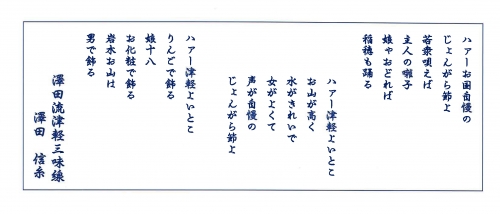 ハァーお国自慢の
じょんがら節よ
若衆唄えば
主人の囃子
娘やおどれば
稲穂も踊る
ハァー津軽よいとこ
お山が高く
水がきれいで
女がよくて
声が自慢の
じょんがら節よ
ハァー津軽よいとこ
りんごで飾る
娘十八
お化粧で飾る
岩木お山は
男で飾る
澤田流津軽三味線
澤田 信糸